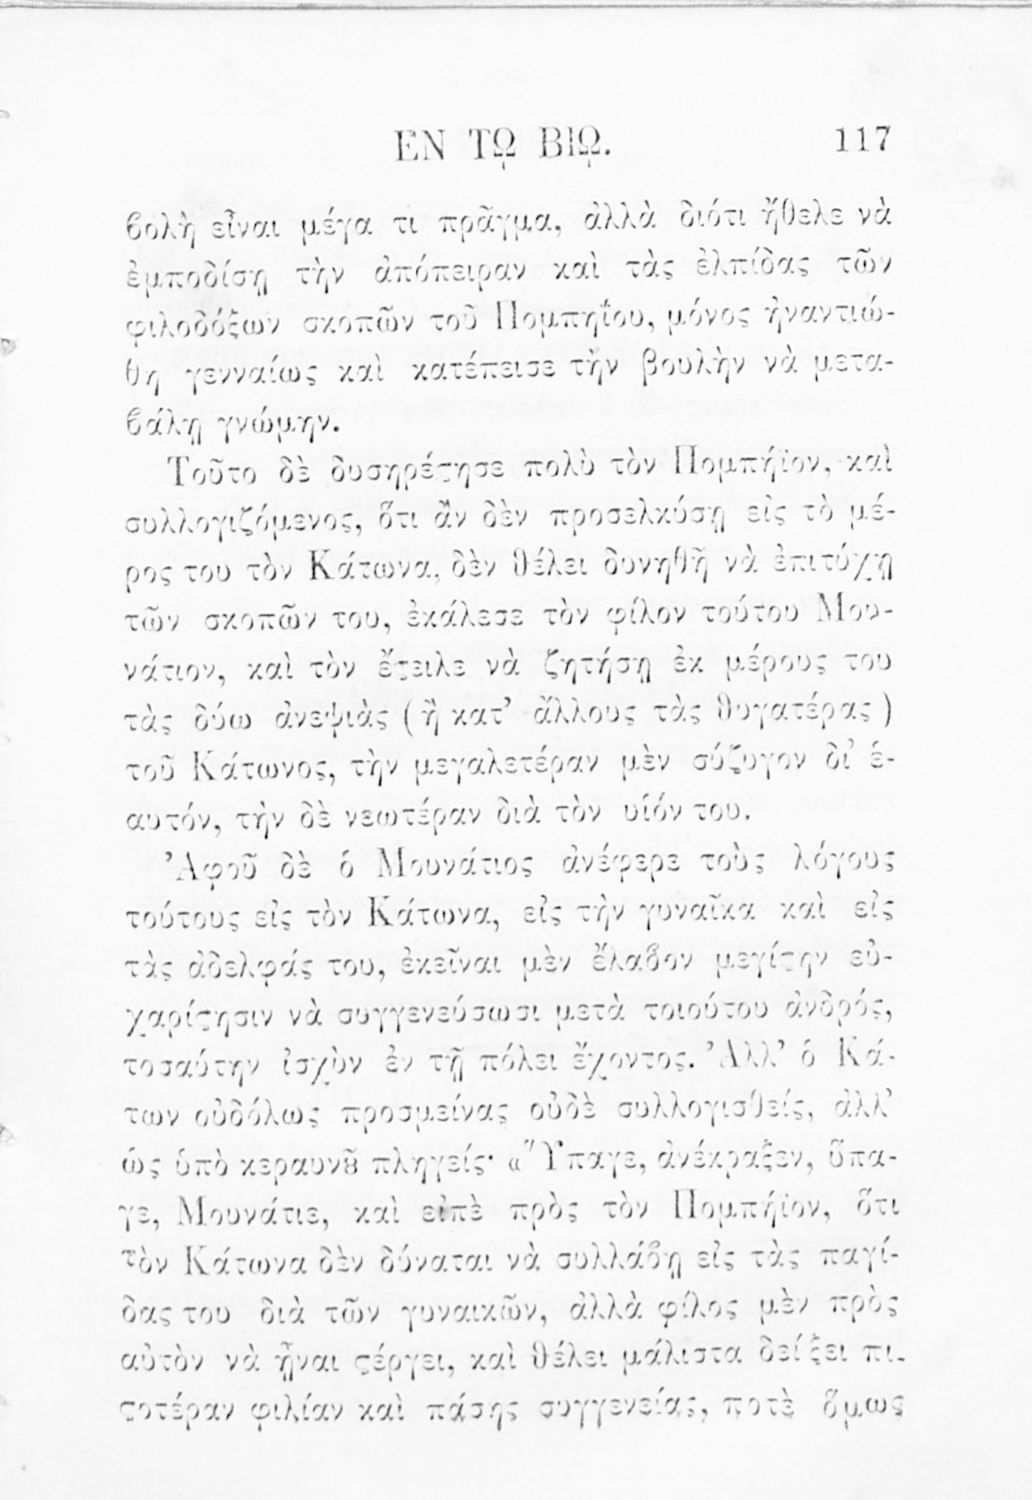 ΕΝ ΤΩ ΒΙΩ. 117
βολὴ εἶναι μέγα τι πρᾶγμα, ἀλλὰ διότι ἤθελε νὰ
ἐμποδίσῃ τὴν ἀπόπειραν καὶ τὰς ἐλπίδας τῶν
φιλοδόξων σκοπῶν τοῦ Πομπηΐου, μόνος ἠναντιώ-
θη γενναίως καὶ κατέπεισε τὴν βουλὴν νὰ μετα-
βάλῃ γνώμην.
Τοῦτο δὲ δυσηρέϛησε πολὺ τὸν Πομπήϊον, καὶ
συλλογιζόμενος, ὅτι ἂν δὲν προσελκύσῃ εἰς τὸ μέ-
ρος του τὸν Κάτωνα, δὲν θέλει δυνηθῆ νὰ ἐπιτύχῃ
τῶν σκοπῶν του, ἐκάλεσε τὸν φίλον τούτου Μου-
νάτιον, καὶ τὸν ἔϛειλε νὰ ζητήσῃ ἐκ μέρους του
τὰς δύω ἀνεψιὰς (ἢ κατ’ ἄλλους τὰς θυγατέρας)
τοῦ Κάτωνος, τὴν μεγαλετέραν μὲν σύζυγον δι’ ἑ-
αυτόν, τὴν δὲ νεωτέραν διὰ τὸν υἱόν του.
Ἀφοῦ δὲ ὁ Μουνάτιος ἀνέφερε τοὺς λόγους
τούτους εἰς τὸν Κάτωνα, εἰς τὴν γυναῖκα καὶ εἰς
τὰς ἀδελφάς του, ἐκεῖναι μὲν ἔλαβον μεγίϛην εὐ-
χαρίϛησιν νὰ συγγενεύσωσι μετὰ τοιούτου ἀνδρός,
τοσαύτην ἰσχὺν ἐν τῇ πόλει ἔχοντος. Ἀλλ’ ὁ Κά-
των οὐδόλως προσμείνας οὐδὲ συλλογισθείς, ἀλλ’
ὡς ὑπὸ κεραυνȣ͂ πληγείς· «Ὕπαγε, ἀνέκραξεν, ὕπα-
γε, Μουνάτιε, καὶ εἰπὲ πρὸς τὸν Πομπήϊον, ὅτι
τὸν Κάτωνα δὲν δύναται νὰ συλλάβῃ εἰς τὰς παγί-
δας του διὰ τῶν γυναικῶν, ἀλλὰ φίλος μὲν πρὸς
αὐτὸν νὰ ἦναι ϛέργει, καὶ θέλει μάλιστα δείξει πι-
ϛοτέραν φιλίαν καὶ πάσης συγγενείας, ποτὲ ὅμως